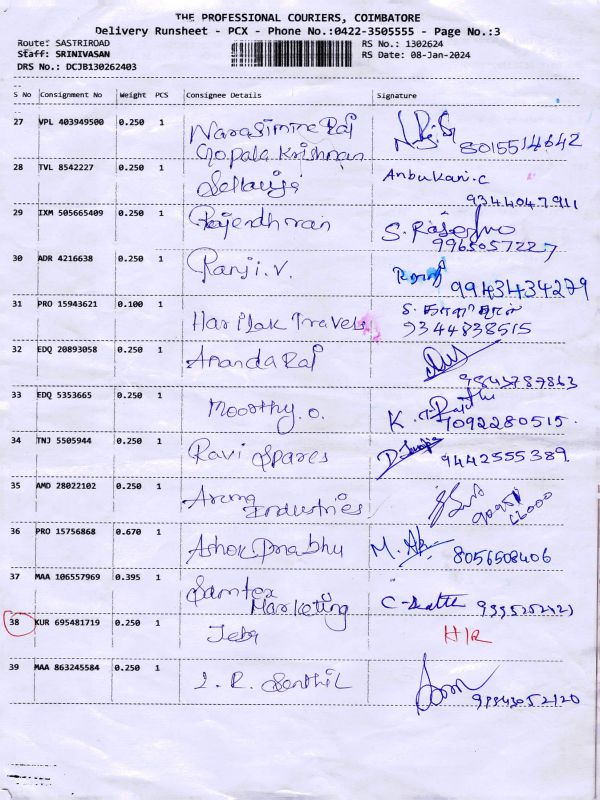 THE PROFESSIONAL COURIERS, COIMBATORE
Delivery Runsheet - PCX - Phone No.:0422-3505555 - Page No.:3
Route: SASTRIROAD RS No.: 1302624
Staff: SRINIVASAN RS Date: 08-Jan-2024
DRS No.: DCJB130262403
S No Consignment No Weight PCS Consignee Details Signature
27 VPL 403949500 0.250 1 Narasimma Raj 8015514642
Gopala Krishnan
28 TVL 8542227 0.250 1 Anbukani.C
9344047911
29 IXM 505665409 0.250 1 Rajendhran S.
9965057227
30 ADR 4216638 0.250 1 Ranji.V. 9943434279
31 PRO 15943621 0.100 1 Harilak Travels
9344838515
32 EDQ 20893058 0.250 1 Ananda Raj
9843787863
33 EDQ 5353665 0.250 1 Moorthy.O. K.
7092280515.
34 TNJ 5505944 0.250 1 Ravi Spares 9442555389
35 AMD 28022102 0.250 1
Industries
36 PRO 15756868 0.670 1 Ashok Prabhu 8056508406
37 MAA 106557969 0.395 1 Samtex
Marketing
38 KUR 695481719 0.250 1 Jeba H/R
39 MAA 863245584 0.250 1 I. R. Senthil